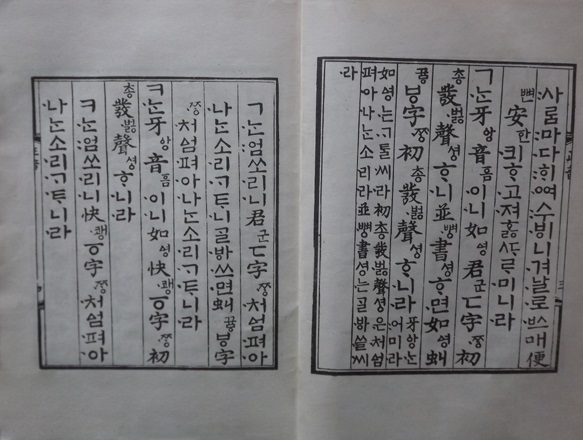 사ᄅᆞᆷ마다ᄒᆡ여수ᄫᅵ니겨날로ᄡᅳ매便
뼌安한킈ᄒᆞ고져홇ᄯᆞᄅᆞ미니라
ㄱᄂᆞᆫ牙앙音ᅙᅳᆷ이니如영君군ㄷ字ᄍᆞᆼ初
총發벓聲셩ᄒᆞ니並뼝書셩ᄒᆞ면如영虯
뀽ㅸ字ᄍᆞᆼ初총發벓聲셩ᄒᆞ니라牙앙ᄂᆞᆫ어미라
如영는ᄀᆞᄐᆞᆯ씨라初총發벓聲셩은처ᅀᅥᆷ
펴아나ᄂᆞᆫ소리라並뼝書셩는ᄀᆞᆯᄫᅡ쓸씨
라
ㄱᄂᆞᆫ엄쏘리니君군ㄷ字ᄍᆞᆼ처ᅀᅥᆷ펴아
나ᄂᆞᆫ소리ᄀᆞᄐᆞ니ᄀᆞᆯᄫᅡ쓰면虯뀽ㅸ字
ᄍᆞᆼ처ᅀᅥᆷ펴아나ᄂᆞᆫ소리ᄀᆞᄐᆞ니라
ㅋᄂᆞᆫ牙앙音ᅙᅳᆷ이니如영快쾡ㆆ字ᄍᆞᆼ初
총發벓聲셩ᄒᆞ니라
ㅋᄂᆞᆫ엄쏘리니快쾡ㆆ字ᄍᆞᆼ처ᅀᅥᆷ펴아
나ᄂᆞᆫ소리ᄀᆞᄐᆞ니라